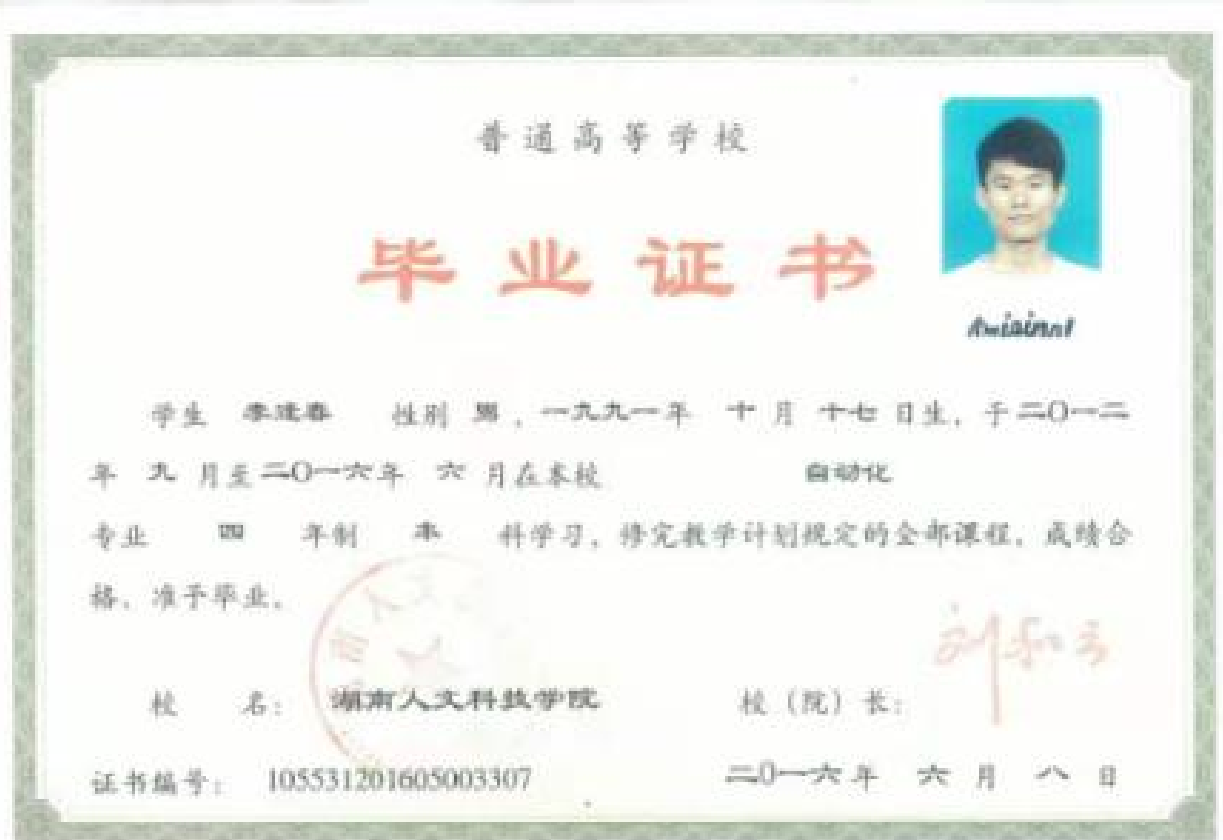 普通高等学校
毕业证书
学生 李建春 性别 男，一九九一年 十 月 十七 日生，于二〇一二
年 九 月至二〇一六年 六 月在本校 自动化
专业 四 年制 本 科学习，修完教学计划规定的全部课程，成绩合
格，准予毕业。
校 名： 湖南人文科技学院 校（院）长： 刘和云
证书编号： 105531201605003307 二〇一六年 六 月 八 日